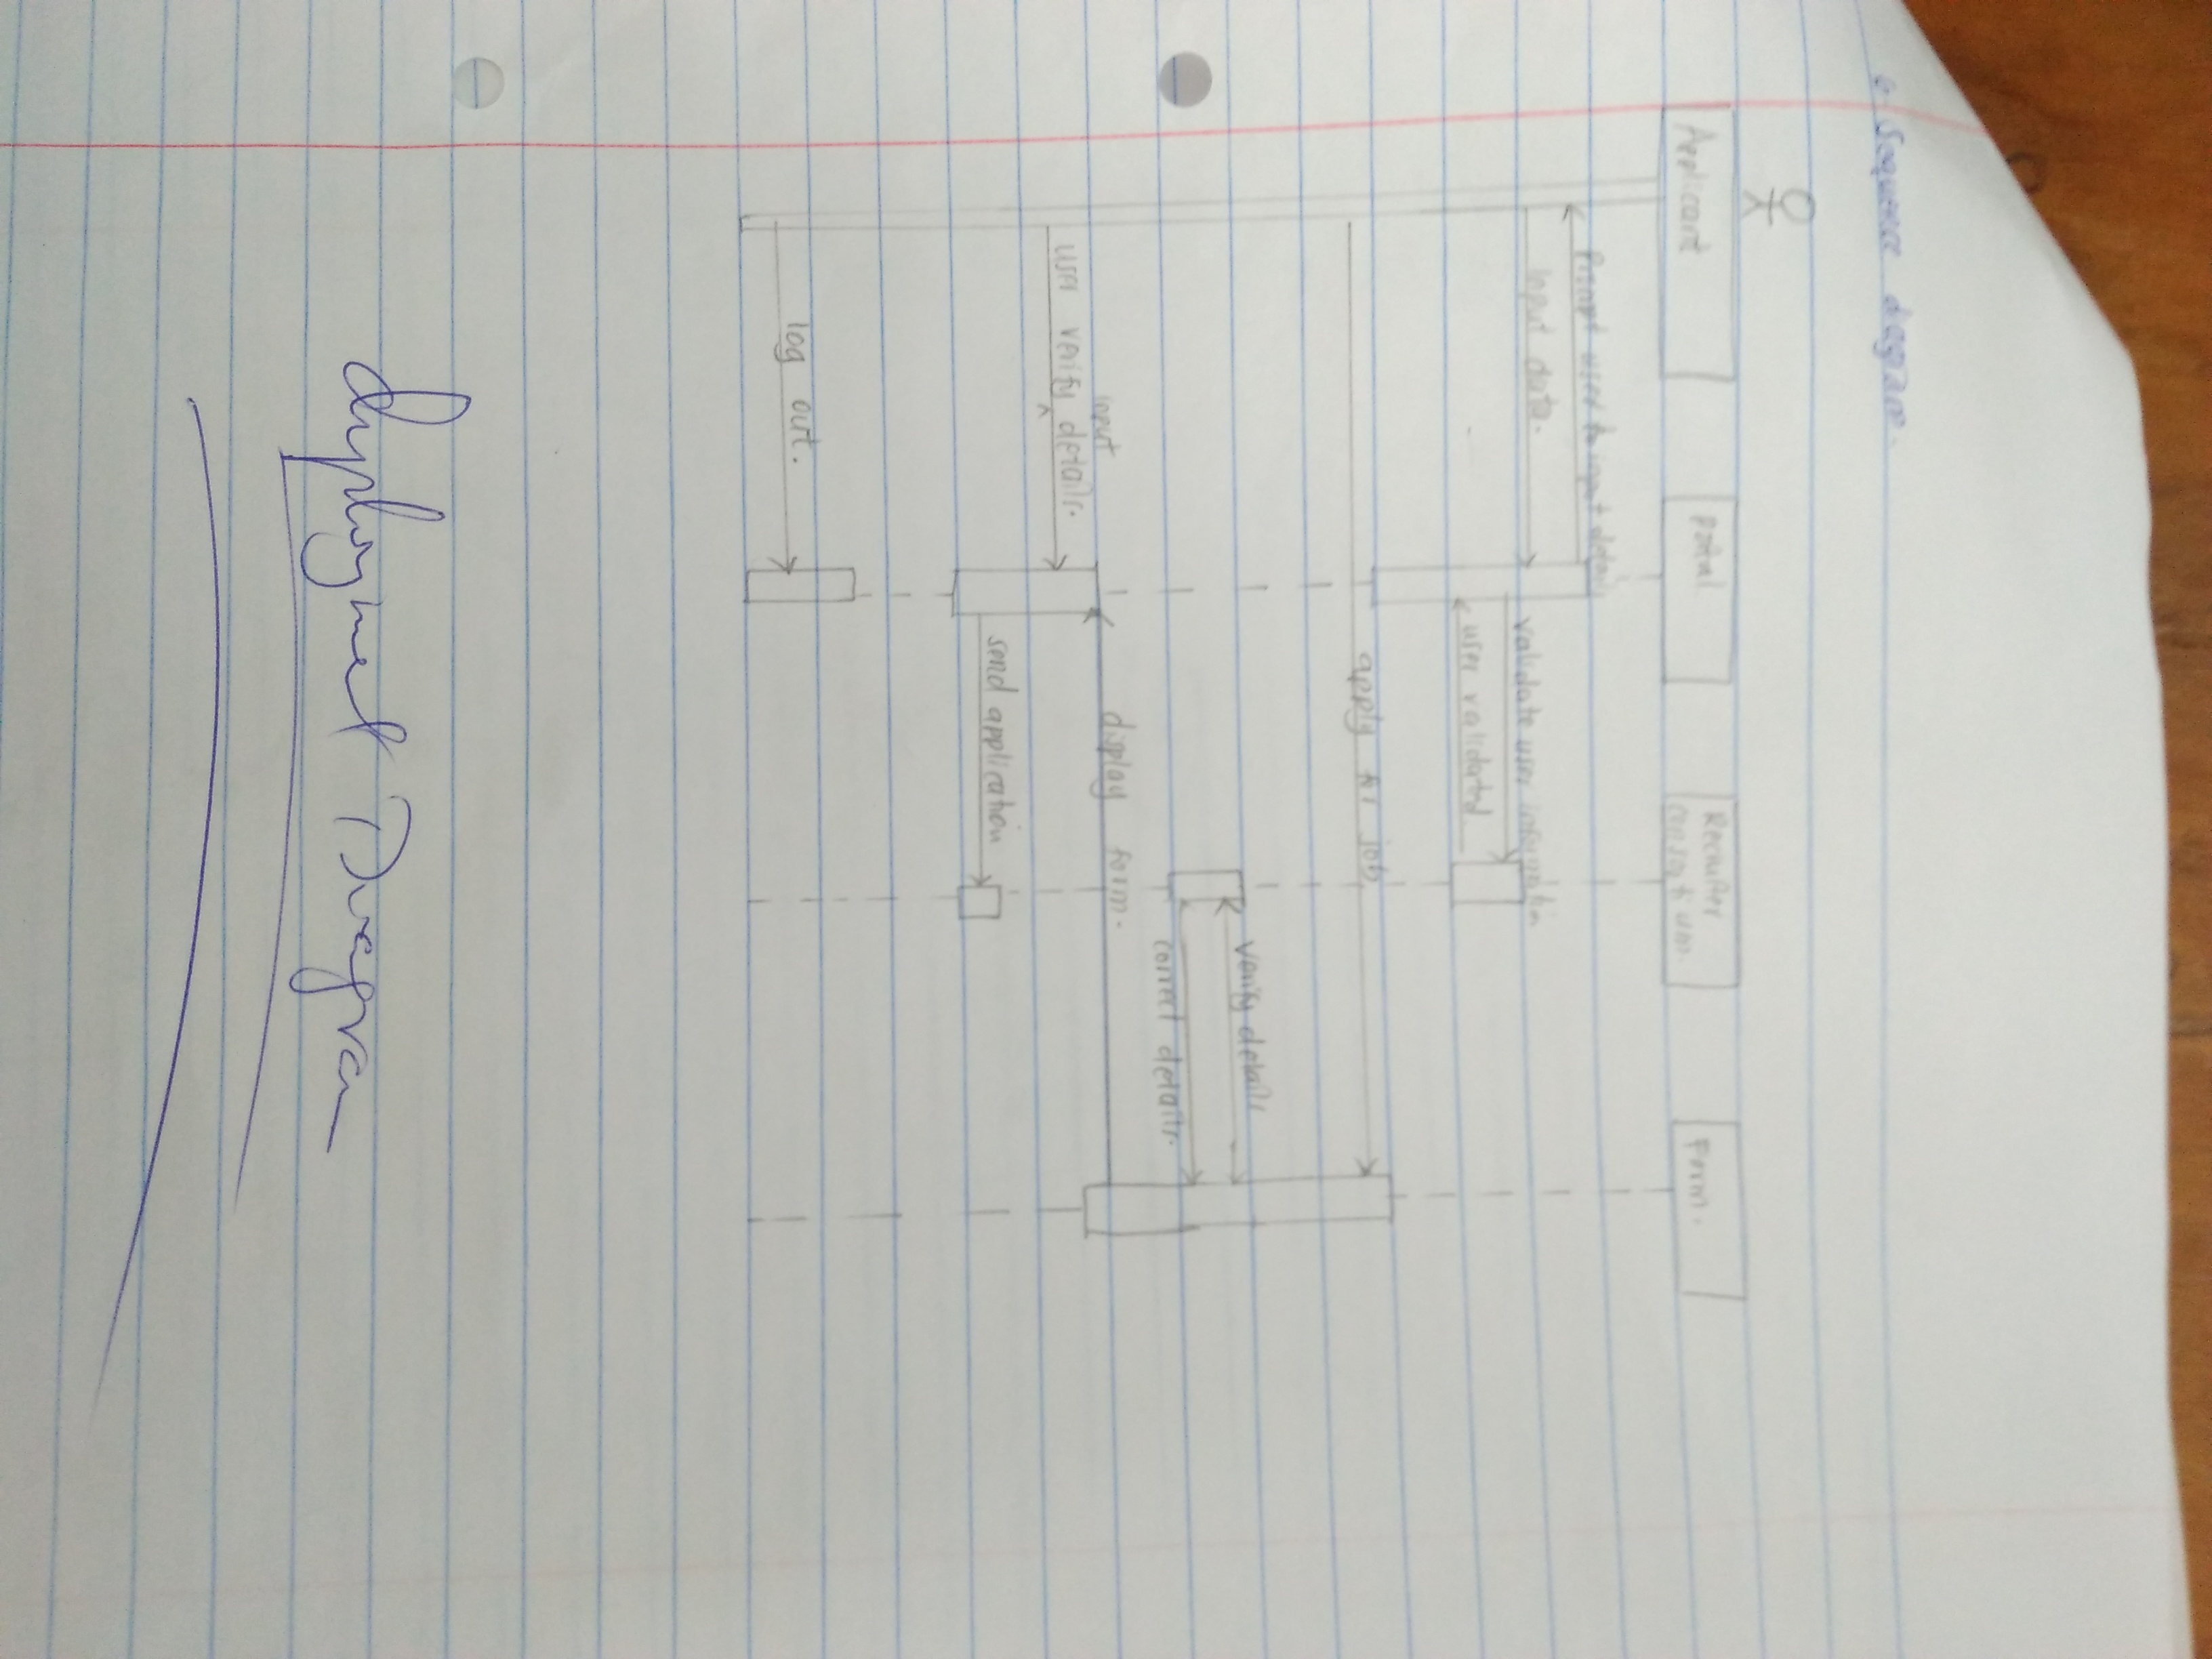 6. Sequence diagram.
Applicant
portal.
Recruiter
consortium.
Form.
Prompt user to input details
Input data.
validate user information
user validated
apply for job
verify details
correct details.
display form.
input
user verify details.
send application
log out.
deployment Diagram